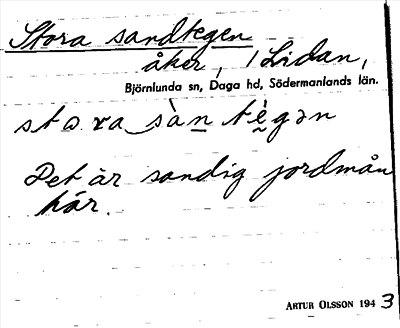 Stora sandtegen
åker, / Lidan,
Björnlunda sn, Daga hd, Södermanlands län.
stɷra sàn tègən
Det är sandig jordmån
här.
ARTUR OLSSON 1943